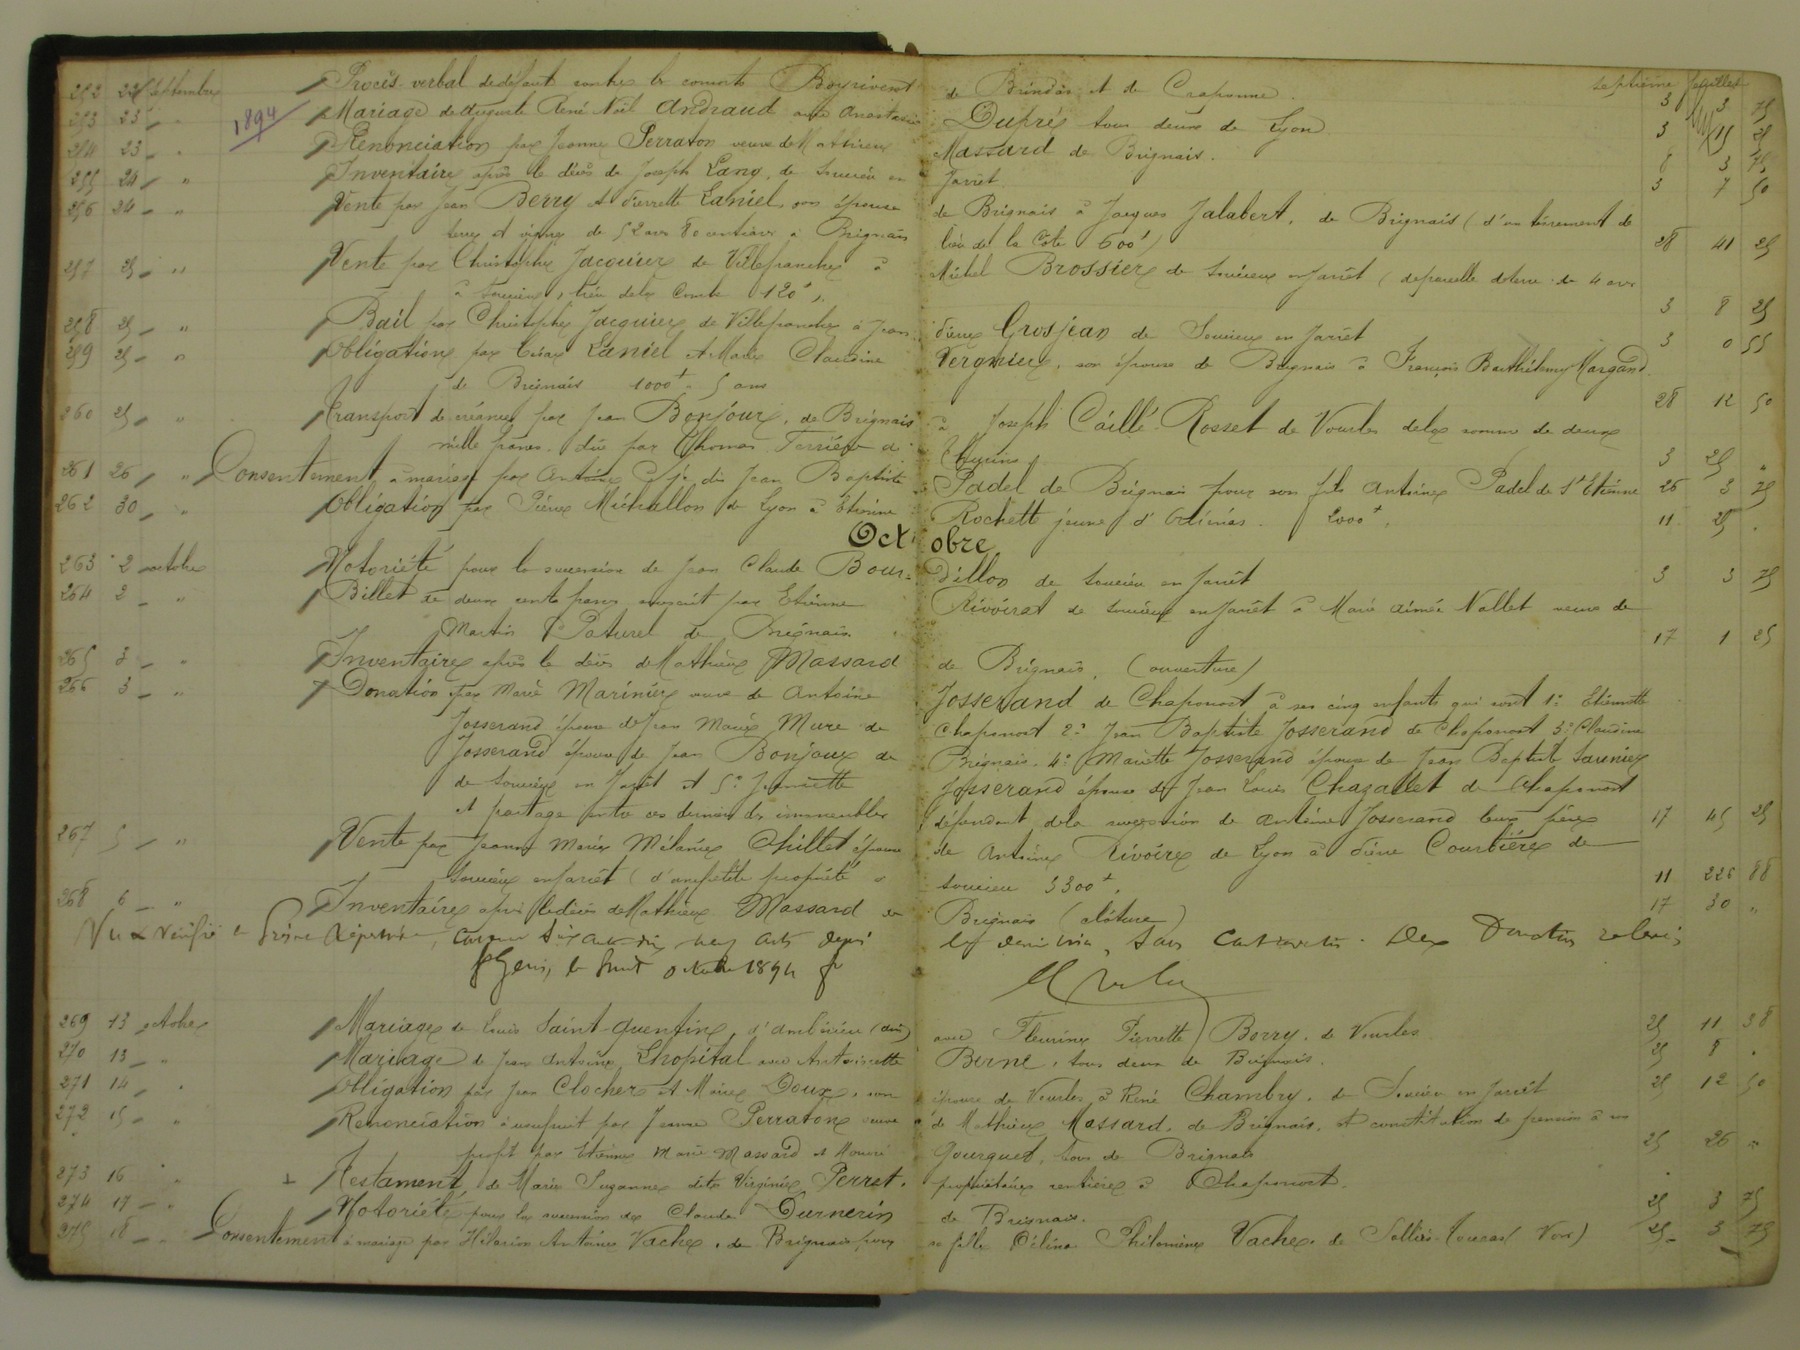 septième feuillet
252 22 Septembre Procès verbal de défaut contre les consorts Boyrivent de Brindas et de Craponne. 3 3 75
1894
253 23 " Mariage de Auguste René Noël Andraud avec Anastasie Dupré tous deux de Lyon 3 15 25
254 23 " Renonciation par Jeanne Perraton veuve de Mathieu Massard de Brignais. 3 75
255 24 " Inventaire après le décès de Joseph Lang, de Soucieu en Jarret 3 7 50
256 24 " Vente par Jean Berry et Pierrette Laniel son épouse de Brignais à Jacques Jalabert, de Brignais (d'un tènement de
terre et vigne de 52 ares 80 centiares à Brignais lieu de la Côte 600f) 28 41 25
257 25 " Vente par Christophe Jacquier de Villefranche à Michel Brossier de Soucieu en Jarret (déparcelle de terre de 4 ares
à Soucieu, lieu de la Combe 120f). 3 8 25
258 25 " Bail par Christophe Jacquier de Villefranche à Jean Pierre Grosjean de Soucieu en Jarret 3 0 55
259 25 " Obligation par César Laniel et Marie Claudine Vergnieux, son épouse de Brignais à François Barthélemy Margand.
de Brignais 1000f - 5 ans 28 12 50
260 25 " Transport de créance par Jean Bonjour, de Brignais à Joseph Caillé Rosset de Vourles de la somme de deux
mille francs due par Thomas Ferrière de Thurins 3 25 "
261 26 " Consentement à mariage par Antoine dit Jean Baptiste Padel de Brignais pour son fils Antoine Padel de St Etienne 26 3 75
262 30 " Obligation par Pierre Michallon de Lyon à Etienne Rochett jeune d'Orliénas. 2000f. 11 25 "
Octobre
263 2 octobre Notoriété pour la succession de Jean Claude Bourdillon de Soucieu en Jarret 3 3 75
264 2 " Billet de deux cents francs souscrit par Etienne Rivoirat de Soucieu en Jarret à Marie Aimée Nallet veuve de
Martin Paturel de Brignais. 17 1 25
265 3 " Inventaire après le décès de Mathieu Massard de Brignais, (ouverture)
266 3 " Donation par Marie Marinier veuve de Antoine Josserand de Chaponost à ses cinq enfants qui sont 1° Etiennette
Josserand épouse de Jean Marie Mure de Chaponost 2° Jean Baptiste Josserand de Chaponost 3° Claudine
Josserand épouse de Jean Bonjour de Brignais. 4° Mariette Josserand épouse de Jean Baptiste Saunier
de Soucieu en Jarret et 5° Jeannette Josserand épouse de Jean Louis Chazallet de Chaponost
et partage entre ces derniers des immeubles dépendant de la succession de Antoine Josserand leur père 17 45 25
267 5 " Vente par Jeanne Marie Mélanie Chillet épouse de Antoine Rivoire de Lyon à Pierre Courbière de
Soucieu en Jarret (d'une petite propriété à Soucieu 3300f. 11 226 88
268 6 " Inventaire après le décès de Mathieu Massard de Brignais (clôture) 17 30 "
Vu et vérifié le présent Répertoire, depuis le dernier visa, sans contravention. Deux Donations relevées
St Genis, le huit octobre 1894
269 13 octobre Mariage de Louis Saint-Quentin, d'Ambérieu (Ain) avec Fleurine Pierrette Borry, de Vourles. 25 11 38
270 13 " Mariage de Jean Antoine Lhopital avec Antoinette Berne, tous deux de Brignais. 25 8 "
271 14 " Obligation par Jean Clocher et Marie Doux, son épouse de Vourles à René Chambry, de Soucieu en Jarret 25 12 50
272 15 " Renonciation à usufruit par Jeanne Perraton veuve de Mathieu Massard, de Brignais, et constitution de pension à son
profit par Etienne Marie Massard et Gourguet, tous de Brignais 25 26 "
273 16 " Testament de Marie Suzanne dite Virginie Perret, propriétaire rentière à Chaponost.
274 17 " Notoriété pour la succession de Claude Durnerin de Brignais. 25 3 75
275 18 " Consentement à mariage par Hilarion Antoine Vache, de Brignais pour sa fille Célina Philomène Vache, de Solliès-Toucas (Var) 25 3 75